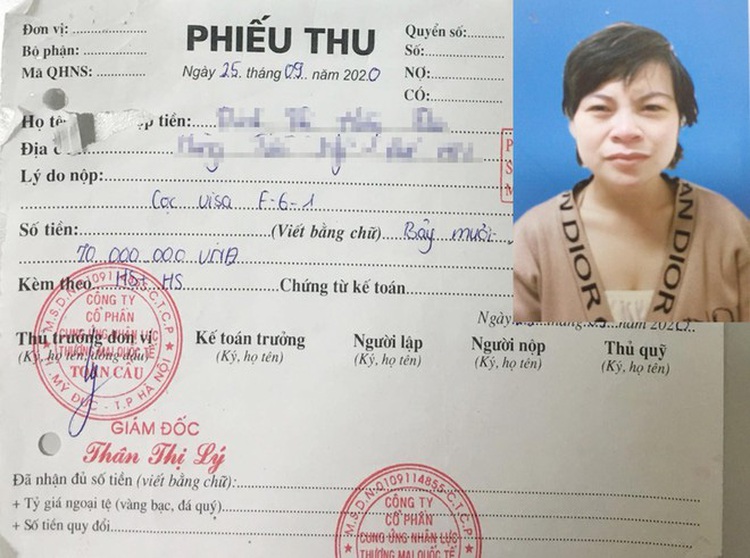 Đơn vị:
Bộ phận:
Mã QHNS:
PHIẾU THU
Ngày 25 tháng 09 năm 2020
Quyển số:
Số:
NỢ:
CÓ:
Họ tê ộp tiền:
Địa c
Lý do nộp:
Cọc visa F-6-1
Số tiền: (Viết bằng chữ) Bảy mươi
70.000.000 VNĐ
Kèm theo: HS HS Chứng từ kế toán
Ngày tháng năm 2020
Thủ trưởng đơn vị
(Ký, họ tên, đóng dấu)
Kế toán trưởng
(Ký, họ tên)
Người lập
(Ký, họ tên)
Người nộp
(Ký, họ tên)
Thủ quỹ
(Ký, họ tên)
M.S.D.N:0109114855.C.T.C.P
CÔNG TY
CỔ PHẦN
CUNG ỨNG NHÂN LỰC
THƯƠNG MẠI QUỐC TẾ
TOÀN CẦU
H. MỸ ĐỨC - T.P HÀ NỘI
GIÁM ĐỐC
Thân Thị Lý
Đã nhận đủ số tiền (viết bằng chữ):
+ Tỷ giá ngoại tệ (vàng bạc, đá quý)
+ Số tiền quy đổi
M.S.D.N:0109114855.C.T.C.P
CÔNG TY
CỔ PHẦN
CUNG ỨNG NHÂN LỰC
THƯƠNG MẠI QUỐC TẾ
DIOR
AN DIOR